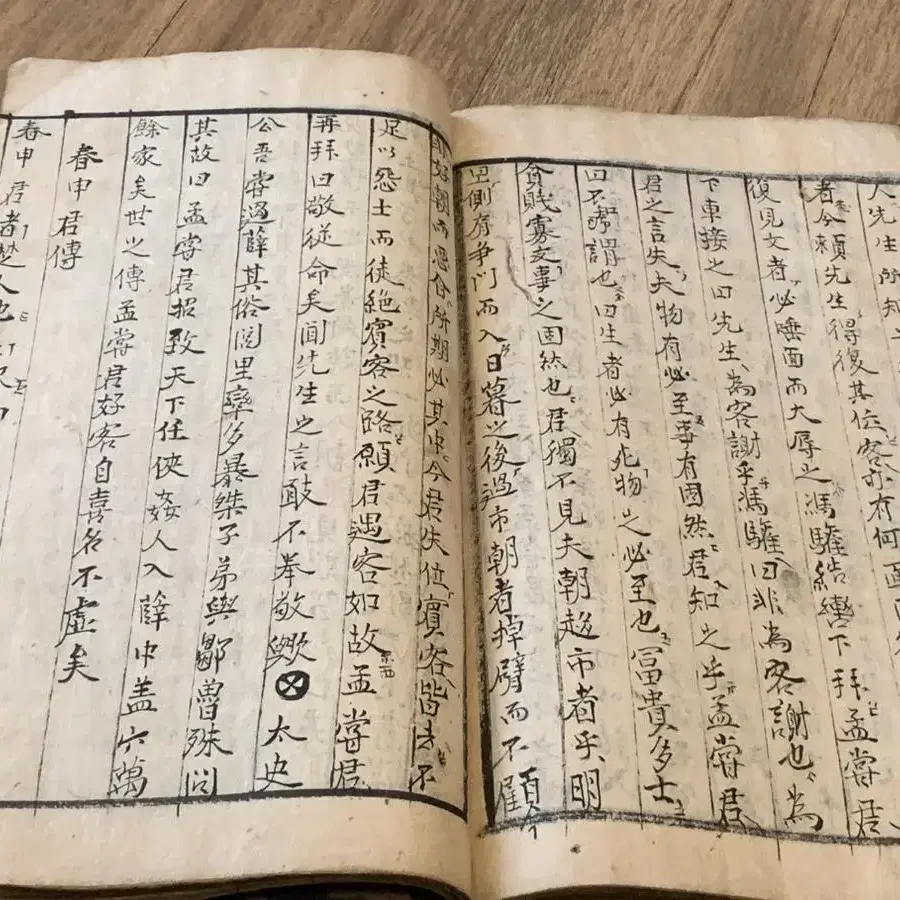 人先生所知
者今賴先生得復其位客亦有何面
復見文者必唾面而大辱之馮驩結轡下拜孟嘗君
下車接之曰先生為客謝乎馮驩曰非為客謝也為
君之言失夫物有必至事有固然君知之乎孟嘗君
曰不謂也曰生者必有死物之必至也富貴多士
貧賤寡友事之固然也君獨不見夫朝趨市者乎明
旦側肩爭門而入日暮之後過市朝者掉臂而不顧
好朝而惡所期必其中今君失位賓客皆去不
足以怨士而徒絕賓客之路願君遇客如故孟嘗君
再拜曰敬從命矣聞先生之言敢不奉敬歟太史
公吾嘗過薛其俗閭里率多暴桀子弟與鄒魯殊問
其故曰孟嘗君招致天下任俠姦人入薛中蓋六萬
餘家矣世之傳孟嘗君好客自喜名不虛矣
春申君傳
春申君者楚人也